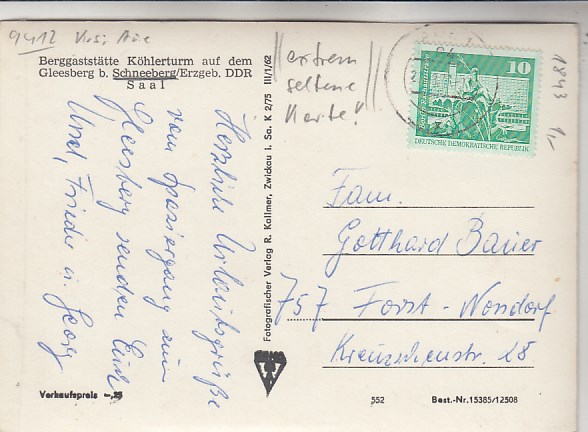 9412 Krs. Aue
Berggaststätte Köhlerturm auf dem
Gleesberg b. Schneeberg/Erzgeb. DDR
Saal
Herzliche Urlaubsgrüße
vom Spaziergang zum
Gleesberg senden Euch
Ursel, Frieder u. Georg
Verkaufspreis -,25
Fotografischer Verlag R. Kallmer, Zwickau i. Sa. K 2/75 III/1/62
extrem
seltene
Karte!
10
Berlin, Neptunbrunnen
DEUTSCHE DEMOKRATISCHE REPUBLIK
1843
1,-
Fam.
Gotthard Bauer
757 Forst-Noßdorf
Kreuzschenstr. 28
552
Best.-Nr. 15385/12508